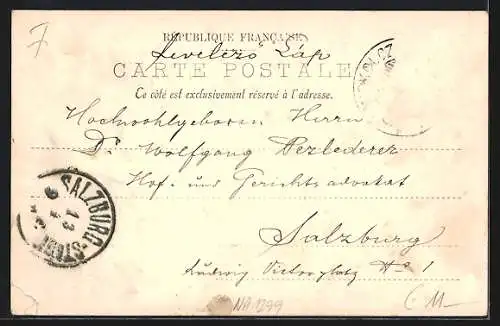 7
RÉPUBLIQUE FRANÇAISE
Levelező Láp
CARTE POSTALE
Ce côté est exclusivement réservé à l'adresse.
Hochwohlgeboren Herrn
Dr. Wolfgang
Hof- und Gerichtsadvokat
SALZBURG-STADT
Salzburg
Ludwig Victorplatz No 1
NA1299